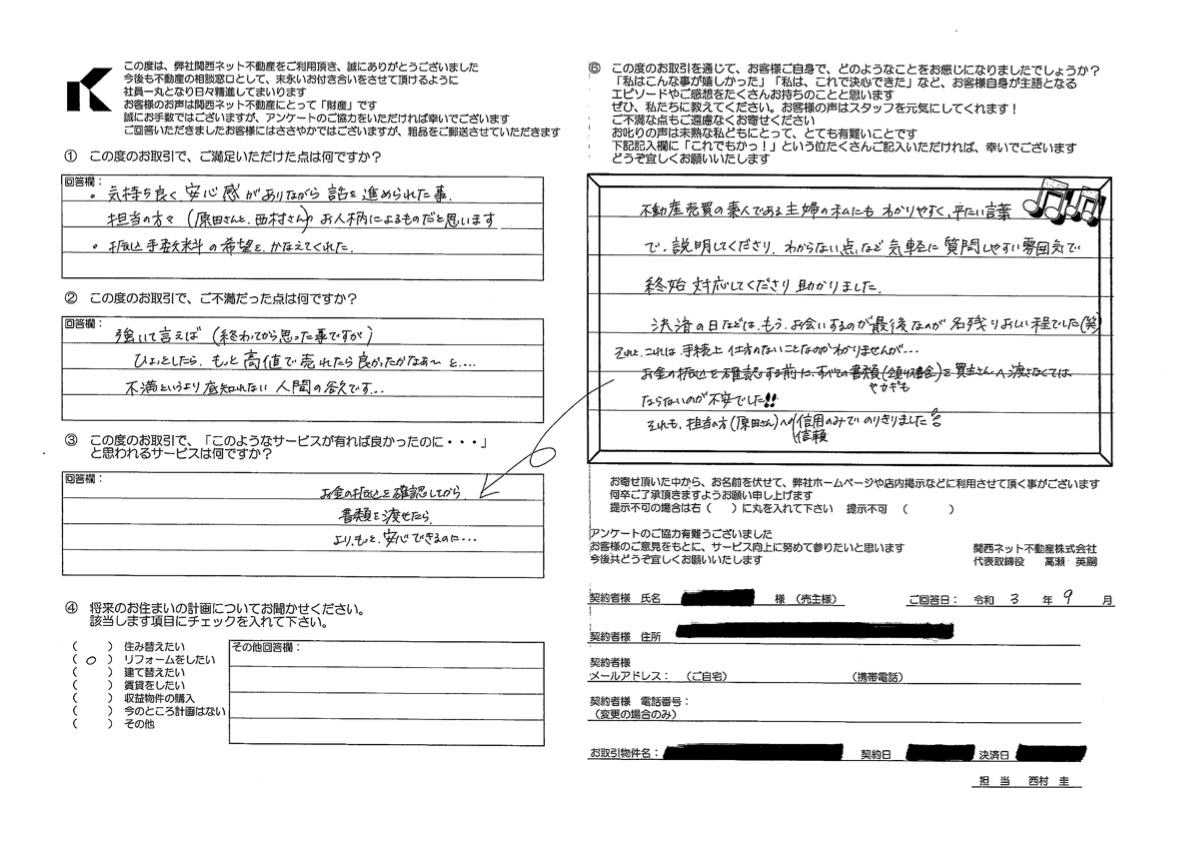 この度は、弊社関西ネット不動産をご利用頂き、誠にありがとうございました
今後も不動産の相談窓口として、末永いお付き合いをさせて頂けるように
社員一丸となり日々精進してまいります
お客様のお声は関西ネット不動産にとって「財産」です
誠にお手数ではございますが、アンケートのご協力をいただければ幸いでございます
ご回答いただきましたお客様にはささやかではございますが、粗品をご郵送させていただきます
① この度のお取引で、ご満足いただけた点は何ですか？
回答欄：
・気持ち良く安心感がありながら話を進められた事。
担当の方々（原田さんと、西村さん）のお人柄によるものだと思います
・振込手数料の希望を、かなえてくれた。
② この度のお取引で、ご不満だった点は何ですか？
回答欄：
強いて言えば（終わってから思った事ですが）
ひょっとしたら、もっと高値で売れたら良かったかなあ〜と....
不満というより底知れない人間の欲です...
③ この度のお取引で、「このようなサービスが有れば良かったのに・・・」
と思われるサービスは何ですか？
回答欄：
お金の振込を確認してから、
書類を渡せたら、
より、もっと、安心できるのに...
④ 将来のお住まいの計画についてお聞かせください。
該当します項目にチェックを入れて下さい。
（　　）住み替えたい
（ ○ ）リフォームをしたい
（　　）建て替えたい
（　　）賃貸をしたい
（　　）収益物件の購入
（　　）今のところ計画はない
（　　）その他
その他回答欄：
⑥ この度のお取引を通じて、お客様ご自身で、どのようなことをお感じになりましたでしょうか？
「私はこんな事が嬉しかった」「私は、これで決心できた」など、お客様自身が主語となる
エピソードやご感想をたくさんお持ちのことと思います
ぜひ、私たちに教えてください。お客様の声はスタッフを元気にしてくれます！
ご不満な点もご遠慮なくお寄せください
お叱りの声は未熟な私どもにとって、とても有難いことです
下記記入欄に「これでもかっ！」という位たくさんご記入いただければ、幸いでございます
どうぞ宜しくお願いいたします
不動産売買の素人である主婦の私にもわかりやすく、平たい言葉
で、説明してくださり、わからない点など気軽に質問しやすい雰囲気で
終始対応してくださり助かりました。
決済の日などは、もう、お会いするのが最後なのが名残りおしい程でした（笑）
それと、これは、手続上仕方のないことなのかわかりませんが...
お金の振込を確認する前に、すべての書類（領収書含）を買主さんへ渡さなくては
やカギも
ならないのが不安でした!!
それも、担当の方（原田さん）への信用のみでのりきりました
信頼
お寄せ頂いた中から、お名前を伏せて、弊社ホームページや店内掲示などに利用させて頂く事がございます
何卒ご了承頂きますようお願い申し上げます
提示不可の場合は右（　　）に丸を入れて下さい　提示不可　（　　　　）
アンケートのご協力有難うございました
お客様のご意見をもとに、サービス向上に努めて参りたいと思います
今後共どうぞ宜しくお願いいたします
関西ネット不動産株式会社
代表取締役　高瀬　英嗣
契約者様 氏名　様（売主様）　ご回答日：　令和　3　年　9　月
契約者様 住所
契約者様
メールアドレス：　（ご自宅）　（携帯電話）
契約者様 電話番号：
（変更の場合のみ）
お取引物件名：　契約日　決済日
担　当　西村　圭